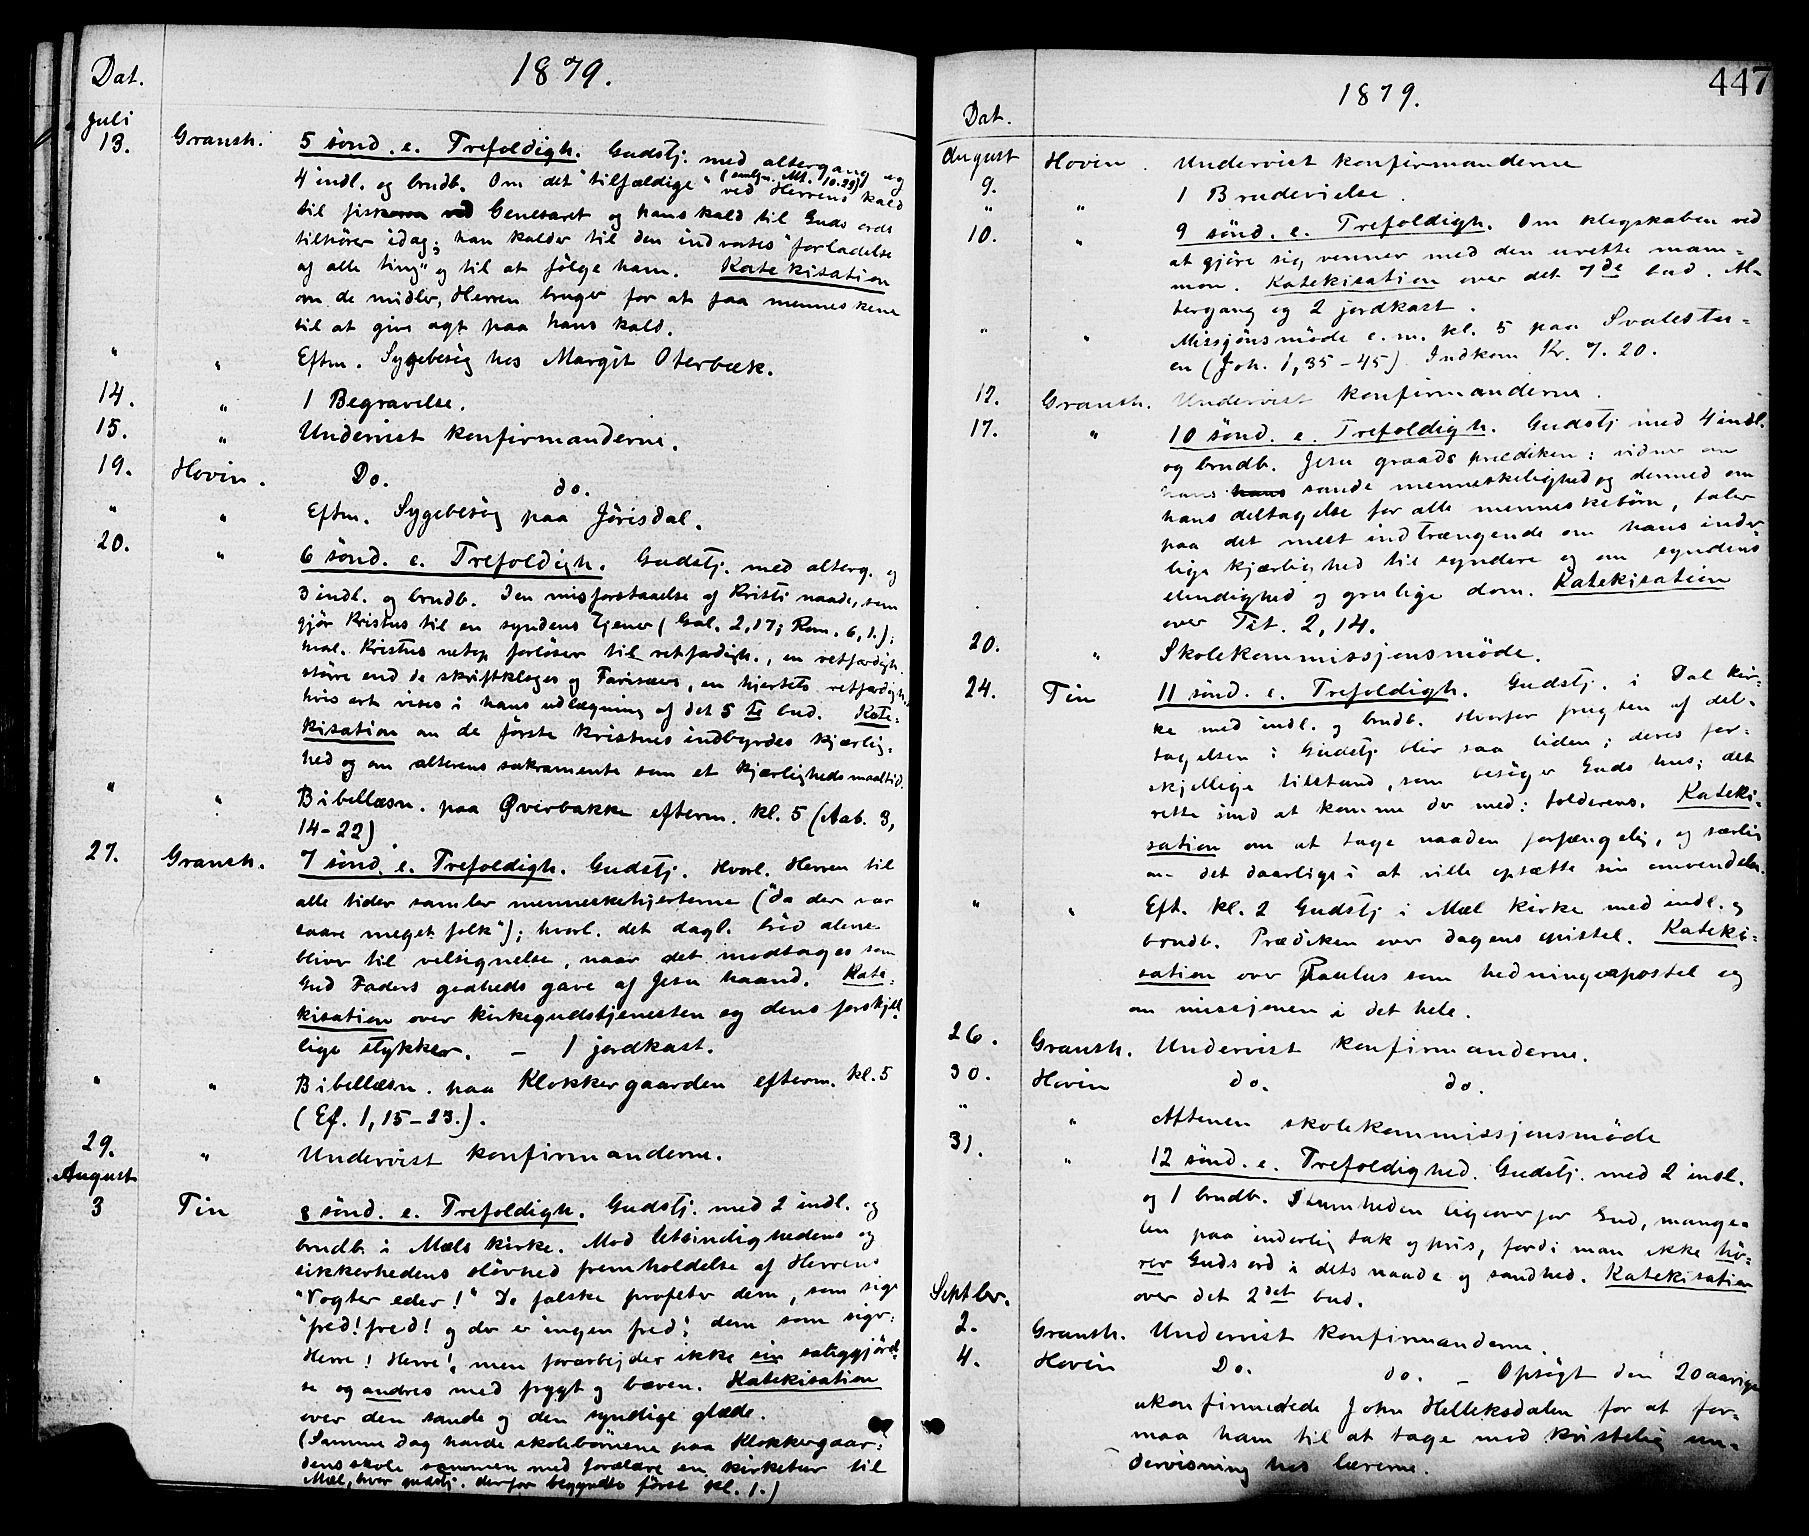 1879.
Dat.
Juli
13. Gransh. 5 sönd. e. Trefoldigh. Gudstj. med altergang og
4 indl. og brudb. Om det "tilfældige" (smlgn. Mt. 10.29) ved Herrens kald
til fiskerne ved Genesaret og hans kald til Guds ords
tilhører idag; han kalder til den indvortes "forladelse
af alle ting" og til at følge ham. Katekisation
om de midler, Herren bruger for at faa menneskene
til at give agt paa hans kald.
" " Eftm. Sygebesög hos Margit Oterbæk.
14. " 1 Begravelse.
15. " Undervist konfirmanderne.
19. Hovin. Do. do.
" " Eftm. Sygebesög paa Jörisdal.
20. " 6 sönd. e. Trefoldigh. Gudstj. med alterg. og
3 indl. og brudb. Den misforstaaelse af Kristi naade, som
gjör Kristus til en syndens tjener (Gal. 2,17; Rom. 6,1.);
mal. Kristus netop forløser til retfærdigh., en retfærdigh.
större end de skriftkloges og Farisæers, en hjertets retfærdigh.
hvis art vises i hans udlægning af det 5te bud. Kate-
kisation om de förste kristnes indbyrdes kjærlig-
hed og om alterens sakramente som et kjærlighedsmaaltid.
" " Bibellæsn. paa Øverbakke efterm. kl. 5 (Aab. 3,
14-22)
27. Gransh. 7 sönd. e. Trefoldigh. Gudstj. Hvorl. Herren til
alle tider samler menneskehjerterne ("da der var
saare meget folk"); hvorl. det dagl. bröd alene
bliver til velsignelse, naar det modtages som
Gud Faders godheds gave af Jesu haand. Kate-
kisation over kirkegudstjenesten og dens forskjel-
lige stykker. – 1 jordkast.
" " Bibellæsn. paa Klokkergaarden efterm. kl. 5
(Ef. 1,15-23.).
29. " Undervist konfirmanderne.
August
3 Tin 8 sönd. e. Trefoldigh. Gudstj. med 2 indl. og
brudb. i Mæls kirke. Mod letsindighedens og
sikkerhedens slövhed fremholdelse af Herrens
"Vogter eder!" De falske profeter dem, som sige
"fred! fred! og der er ingen fred", dem som sige:
Herre! Herre!, men forarbejder ikke sin saliggjörel-
se og andres med frygt og bæven. Katekisation
over den sande og den syndige glæde.
(Samme dag havde skolebörnene paa Klokkergaar-
dens skole sammen med forældre en kirketur til
Mæl, hvor gudstj. derfor begyndte först kl. 1.)
447
1879.
Dat.
August
9. Hovin. Undervist konfirmanderne
" " 1 Brudevielse.
10. " 9 sönd. e. Trefoldigh. Om klogskaben ved
at gjöre sig venner med den urette mam-
mon. Katekisation over det 7de bud. Al-
tergang og 2 jordkast.
" " Missjonsmöde e.m. kl. 5 paa Svalestu-
en (Joh. 1,35-45) Indkom Kr. 7.20.
12. Gransh. Undervist konfirmanderne.
17. " 10 sönd. e. Trefoldigh. Gudstj med 4 indl.
og brudb. Jesu graads prædiken: vidner om
hans hans sande menneskelighed og dermed om
hans deltagelse for alle menneskebörn, taler
paa det mest indtrængende om hans inder
lige kjærlighed til syndere og om syndens
elendighed og grulige dom. Katekisation
over Tit. 2,14.
20. " Skolekommissjonsmöde.
24. Tin 11 sönd. e. Trefoldigh. Gudstj. i Dal kir-
ke med indl. og brudb. Hvorfor frugten af del-
tagelsen i Gudstj blir saa liden; deres for-
skjellige tilstand, som besöger Guds hus; det
rette sind at komme der med: tolderens. Kateki-
sation om at tage naaden forfængelig, og særlig
om det daarlige i at ville opsætte sin omvendelse.
" " Eft. kl. 2 Gudstj i Mæl kirke med indl. og
brudb. Prædiken over dagens epistel. Kateki-
sation over Paulus som hedningeapostel og
om missjonen i det hele.
26. Gransh. Undervist konfirmanderne.
30. Hovin do. do.
" " Aftenen skolekommissjonsmöde
31. " 12 sönd. e. Trefoldighed. Gudstj. med 2 indl.
og 1 brudb. Stumheden ligeover for Gud, mange-
len paa inderlig tak og pris, fordi man ikke hö-
rer Guds ord i dets naade og sandhed. Katekisation
over det 2det bud.
Septbr.
2. Gransh. Undervist konfirmanderne.
4. Hovin Do. do. – Opsögt den 20aarige
ukonfirmerede John Helleksdalen for at for-
maa ham til at tage mod kristelig un-
dervisning hos lærerne.